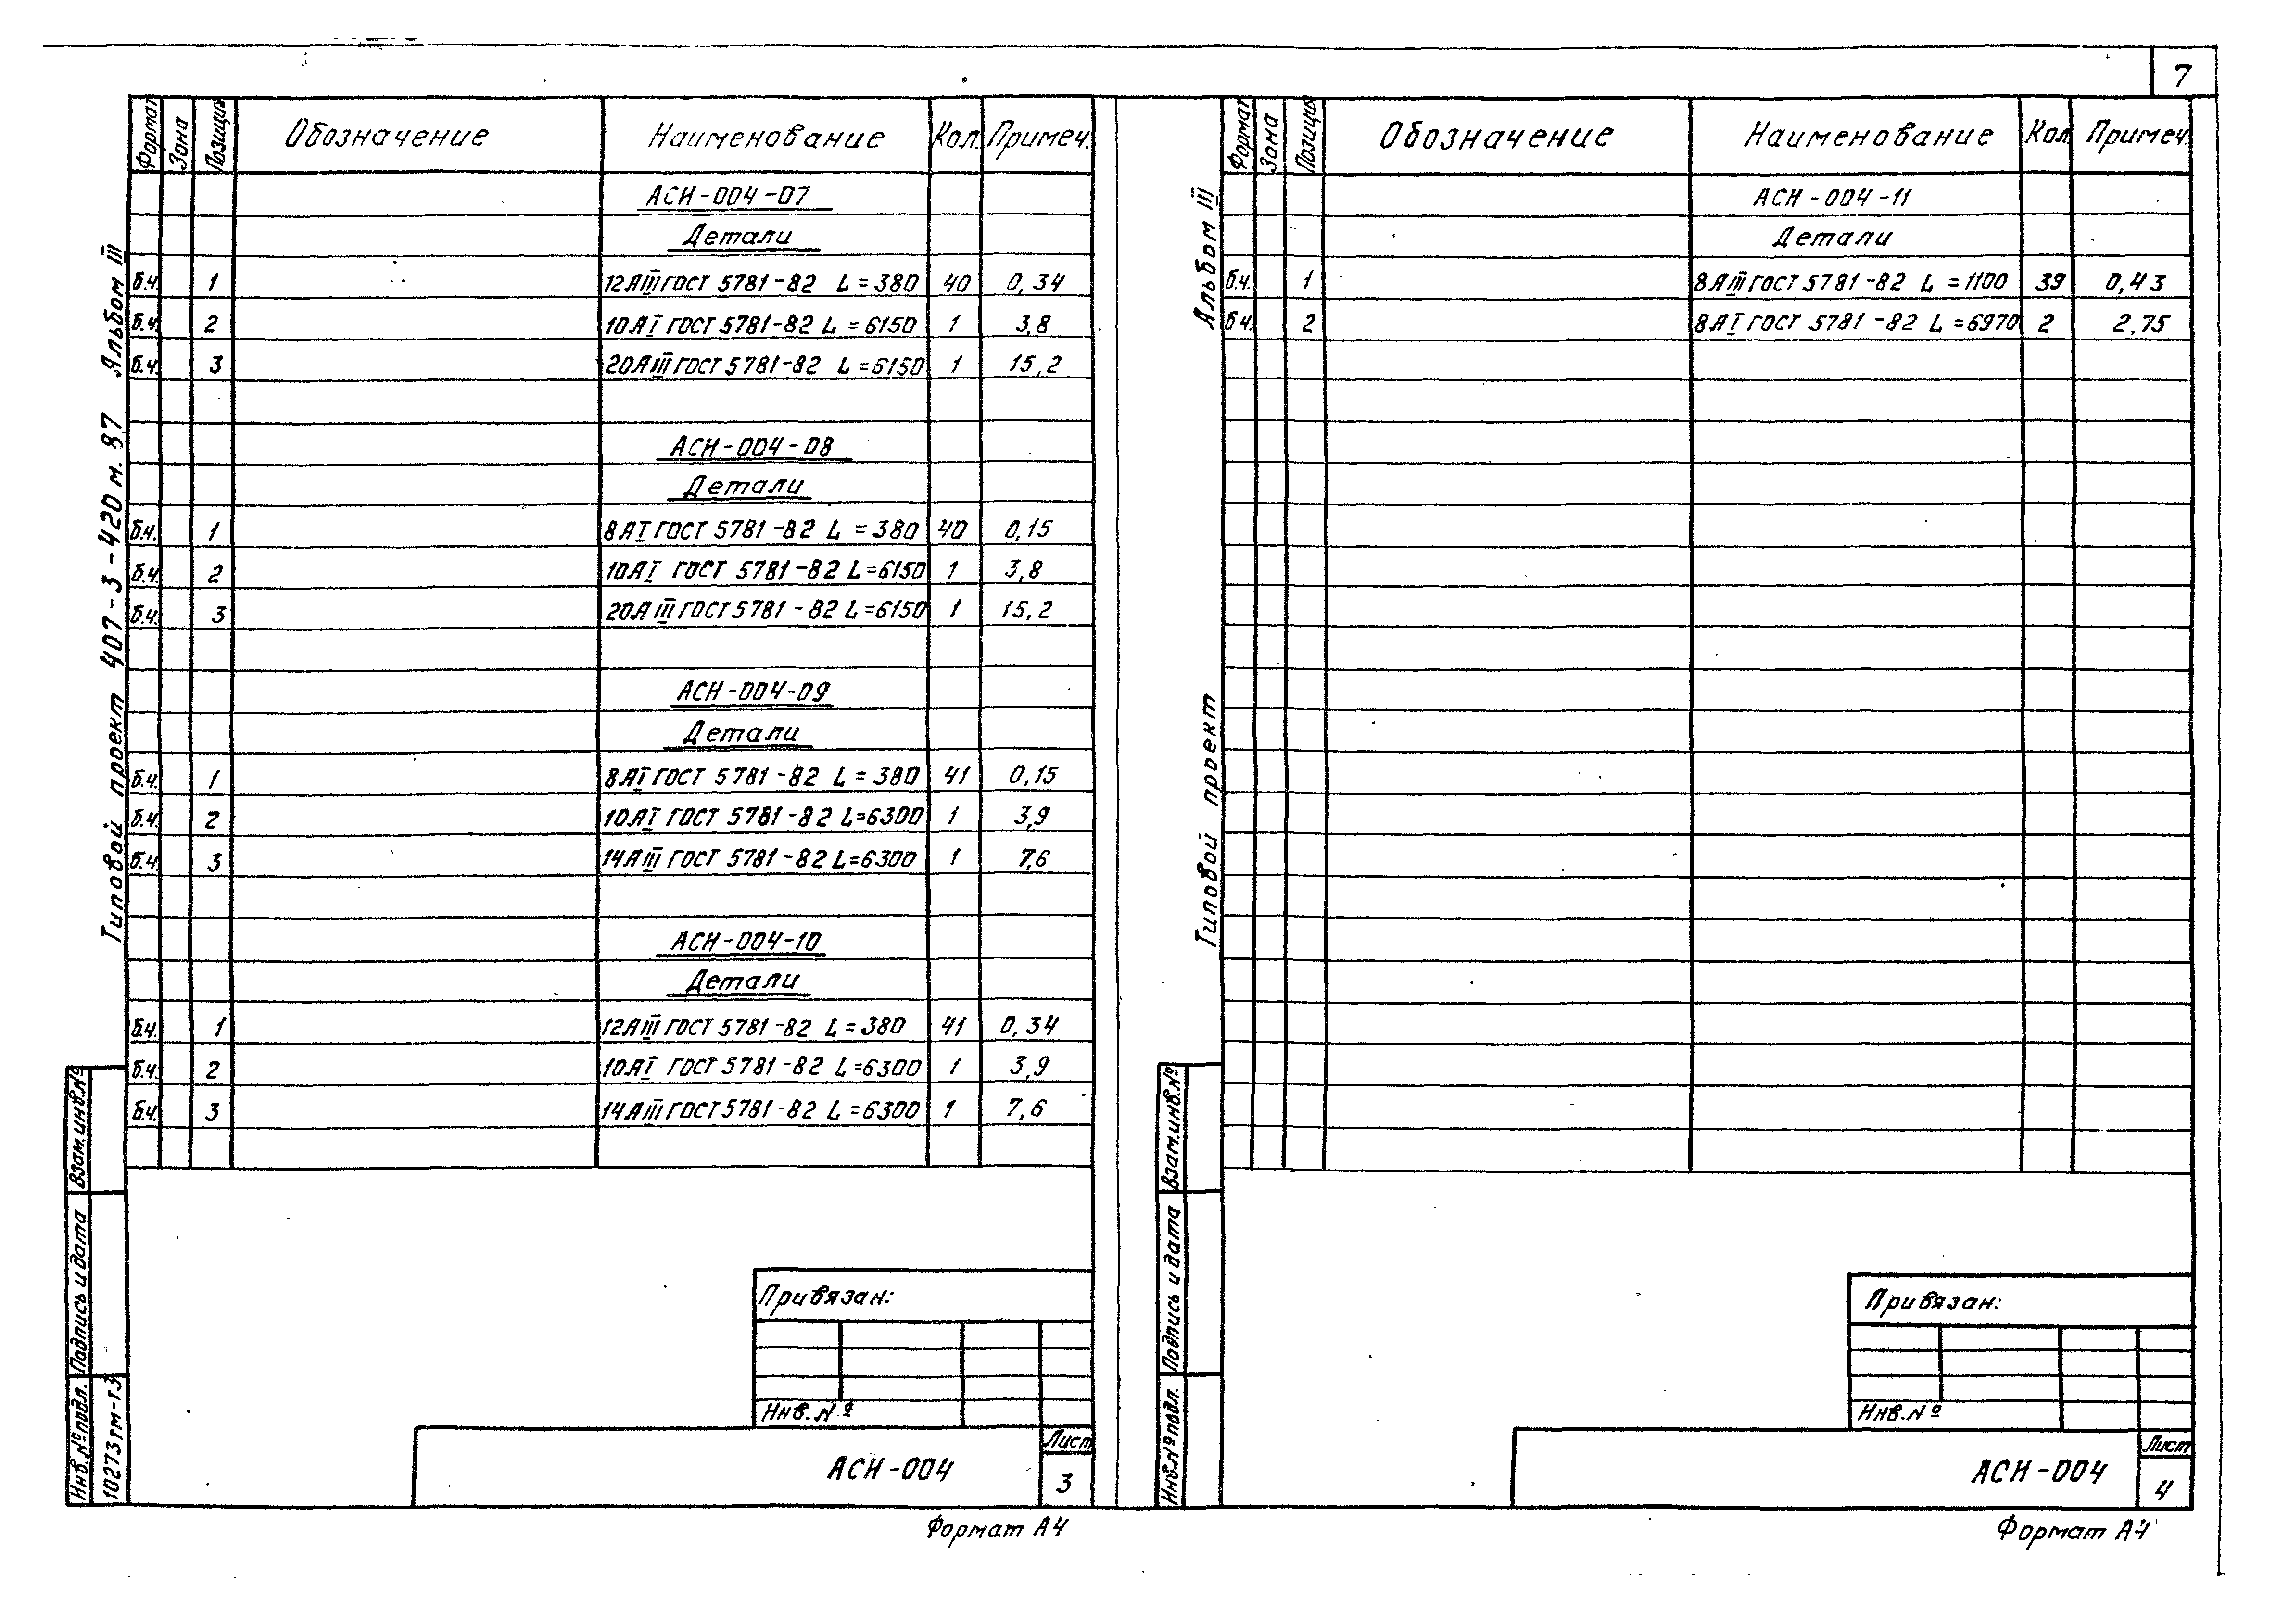 7
Формат Зона Позиция Обозначение Наименование Кол. Примеч.
АСИ-004-07
Детали
б.ч. 1 12АIII ГОСТ 5781-82 L=380 40 0,34
б.ч. 2 10АI ГОСТ 5781-82 L=6150 1 3,8
б.ч. 3 20АIII ГОСТ 5781-82 L=6150 1 15,2
АСИ-004-08
Детали
б.ч. 1 8АI ГОСТ 5781-82 L=380 40 0,15
б.ч. 2 10АI ГОСТ 5781-82 L=6150 1 3,8
б.ч. 3 20АIII ГОСТ 5781-82 L=6150 1 15,2
АСИ-004-09
Детали
б.ч. 1 8АI ГОСТ 5781-82 L=380 41 0,15
б.ч. 2 10АI ГОСТ 5781-82 L=6300 1 3,9
б.ч. 3 14АIII ГОСТ 5781-82 L=6300 1 7,6
АСИ-004-10
Детали
б.ч. 1 12АIII ГОСТ 5781-82 L=380 41 0,34
б.ч. 2 10АI ГОСТ 5781-82 L=6300 1 3,9
б.ч. 3 14АIII ГОСТ 5781-82 L=6300 1 7,6
Типовой проект 407-3-420 м. 87 Альбом III
Взам.инв.№
Подпись и дата
Инв.№подл.
10273тм-т3
Привязан:
Инв.№
АСИ-004
Лист
3
Формат А4
Формат Зона Позиция Обозначение Наименование Кол. Примеч.
АСИ-004-11
Детали
б.ч. 1 8АIII ГОСТ 5781-82 L=1100 39 0,43
б.ч. 2 8АI ГОСТ 5781-82 L=6970 2 2,75
Типовой проект Альбом III
Взам.инв.№
Подпись и дата
Инв.№подл.
Привязан:
Инв.№
АСИ-004
Лист
4
Формат А4